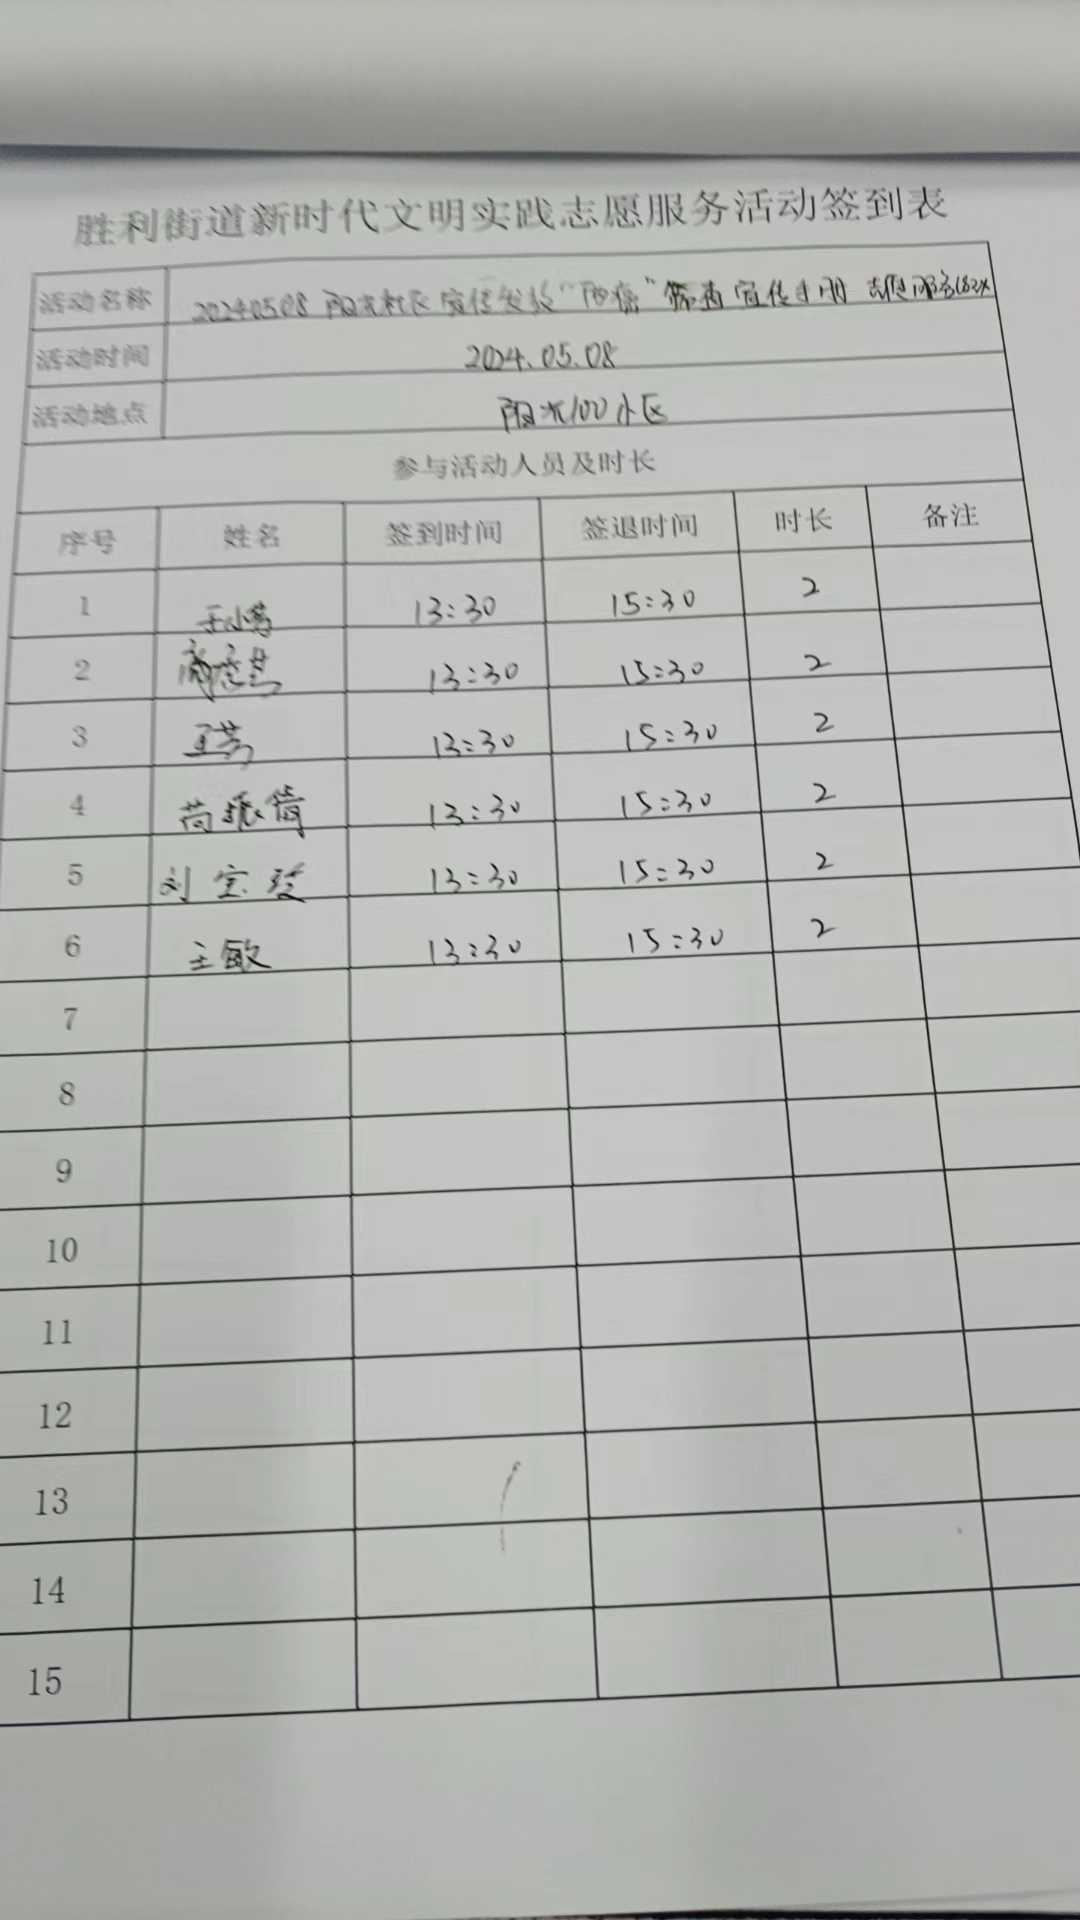 胜利街道新时代文明实践志愿服务活动签到表
活动名称 20240508 阳光社区宣传发放“两癌”筛查宣传手册 志愿服务
活动时间 2024.05.08
活动地点 阳光100小区
参与活动人员及时长
序号 姓名 签到时间 签退时间 时长 备注
1 13:30 15:30 2
2 13:30 15:30 2
3 13:30 15:30 2
4 13:30 15:30 2
5 刘宝 13:30 15:30 2
6 王敏 13:30 15:30 2
7
8
9
10
11
12
13
14
15